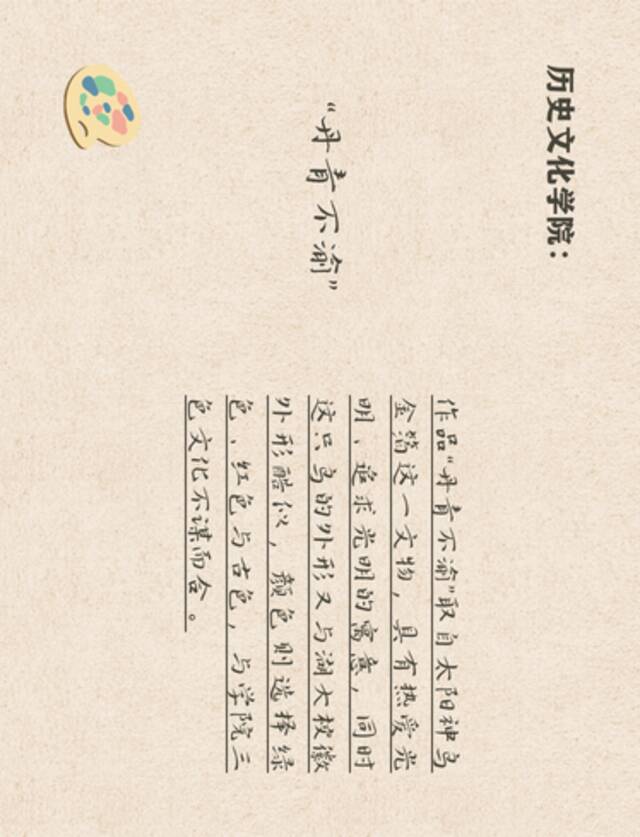 历史文化学院：
“丹青不渝”
作品“丹青不渝”取自太阳神鸟
金箔这一文物，具有热爱光
明、追求光明的寓意，同时
这只鸟的外形又与湖大校徽
外形酷似，颜色则选择绿
色、红色与古色，与学院三
色文化不谋而合。